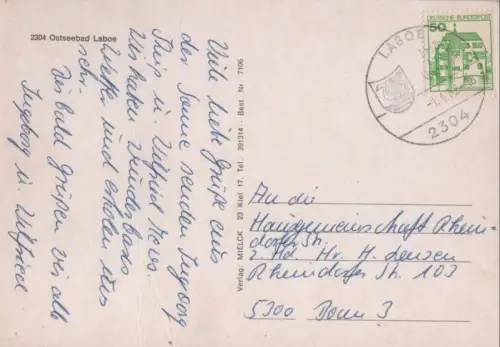 2304 Ostseebad Laboe
Viele liebe Grüße aus
der Sonne senden Ingeborg
u. Wilfried
Wir haben wunderbares
Wetter und erholen uns
sehr.
Bis bald grüßen Sie alle
Ingeborg u. Wilfried
Verlag: MIELCK 23 Kiel 17. Tel.: 391314 - Best. Nr 7106
50
DEUTSCHE BUNDESPOST
LABOE
2304
An die
Hausgemeinschaft Rhein
dorfer Str.
z. Hd. Hr. H. Lenzen
Rheindorfer Str. 103
5300 Bonn 3